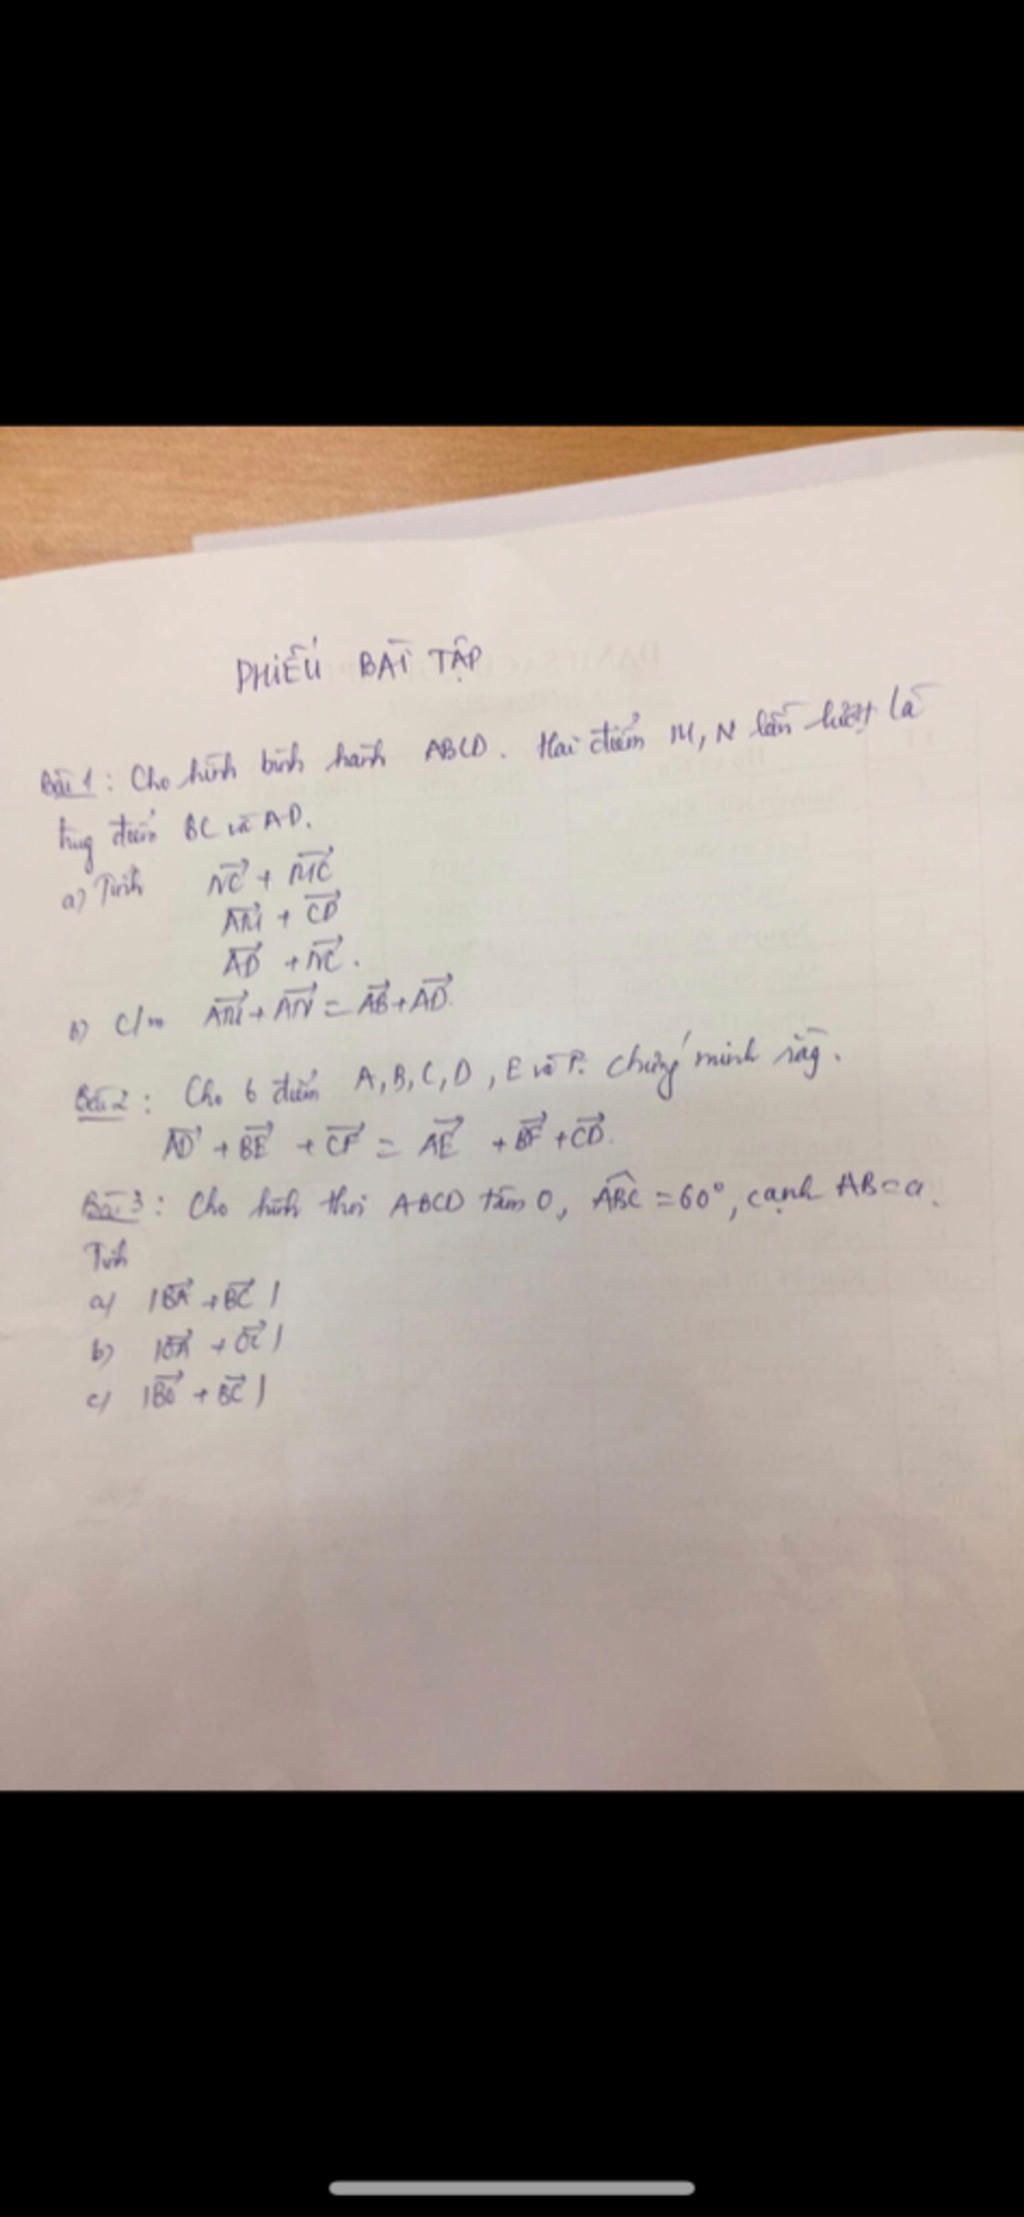 PHIẾU BÀI TẬP
Bài 1 : Cho hình bình hành ABCD. Hai điểm M, N lần lượt là
trung điểm BC và AD.
a) Tính $\overrightarrow{NC} + \overrightarrow{MC}$
$\overrightarrow{AM} + \overrightarrow{CD}$
$\overrightarrow{AD} + \overrightarrow{NC}$.
b) C/m $\overrightarrow{AM} + \overrightarrow{AN} = \overrightarrow{AB} + \overrightarrow{AD}$.
Bài 2 : Cho 6 điểm A, B, C, D, E và F. Chứng minh rằng.
$\overrightarrow{AD} + \overrightarrow{BE} + \overrightarrow{CF} = \overrightarrow{AE} + \overrightarrow{BF} + \overrightarrow{CD}$.
Bài 3 : Cho hình thoi ABCD tâm O, $\widehat{ABC} = 60°$, cạnh AB = a.
Tính
a) $|\overrightarrow{BA} + \overrightarrow{BC}|$
b) $|\overrightarrow{OA} + \overrightarrow{OC}|$
c) $|\overrightarrow{BO} + \overrightarrow{BC}|$